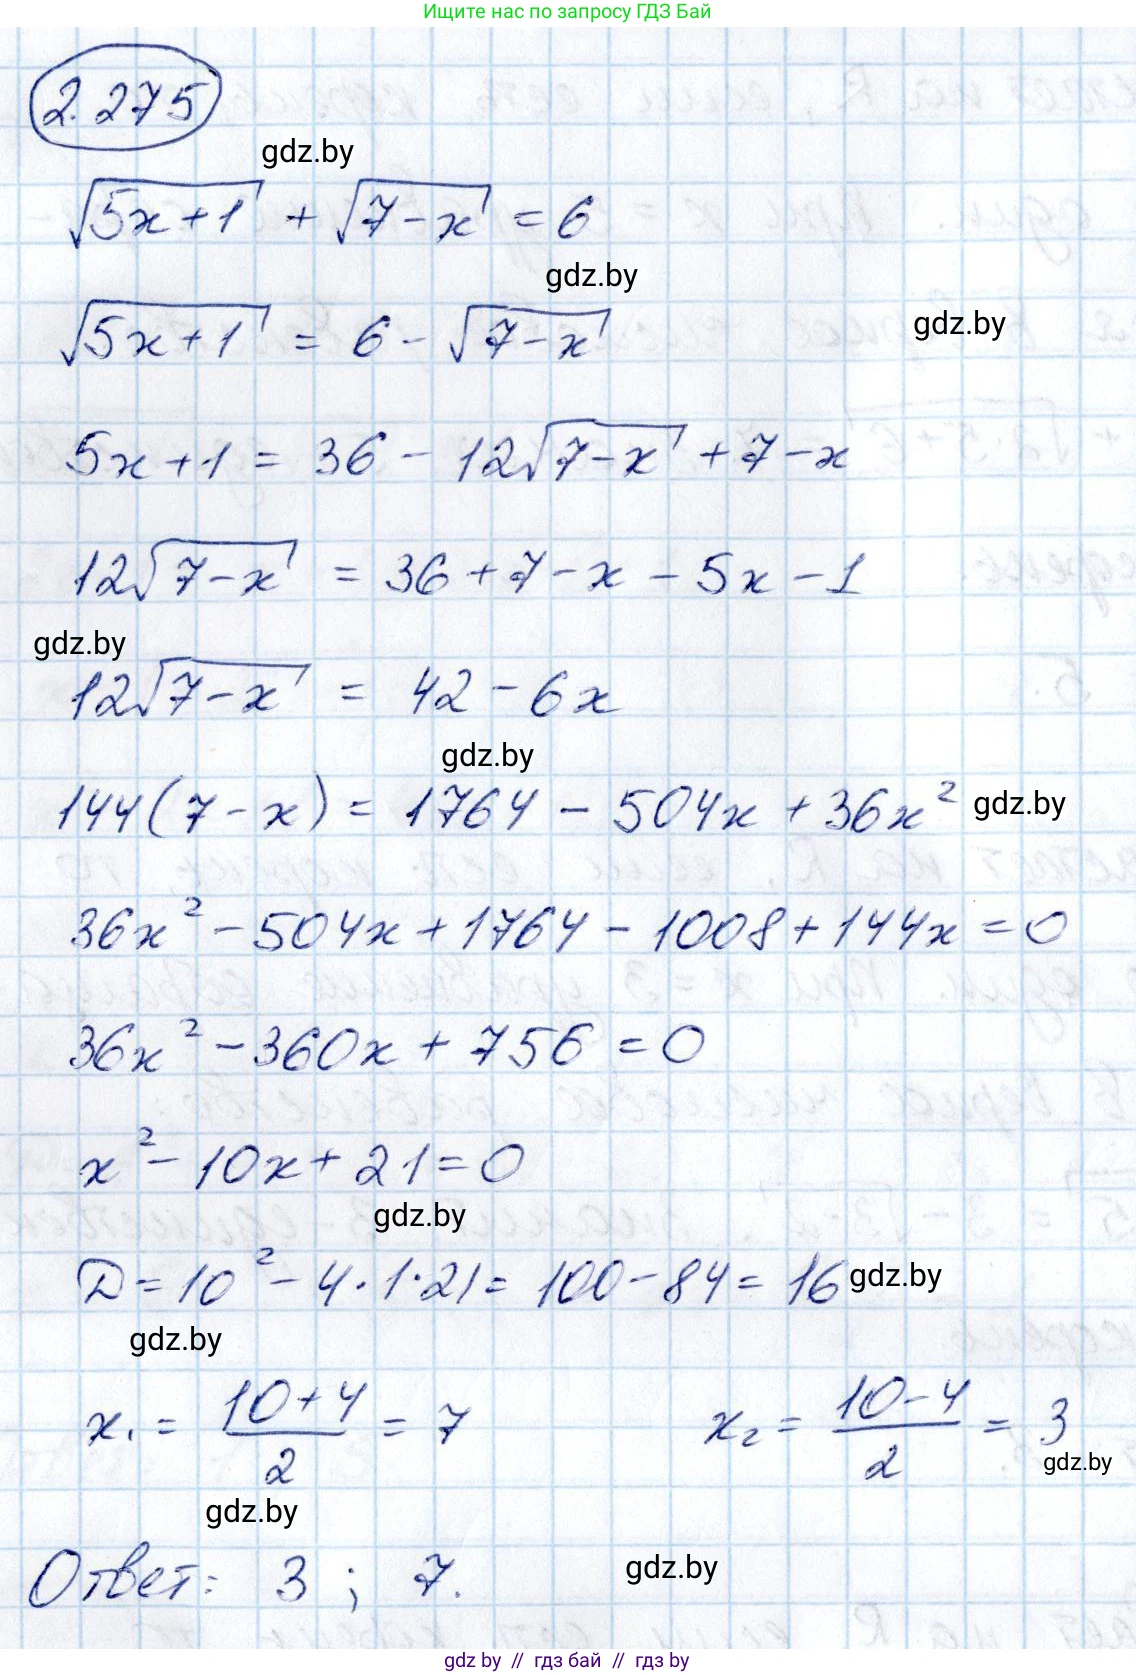 Ищите нас по запросу ГДЗ Бай
2.275
gdz.by
√(5x+1) + √(7-x) = 6
gdz.by
√(5x+1) = 6 - √(7-x)
gdz.by
5x+1 = 36 - 12√(7-x) + 7-x
12√(7-x) = 36+7-x - 5x-1
gdz.by
12√(7-x) = 42-6x
gdz.by
144(7-x) = 1764 - 504x + 36x² gdz.by
36x² - 504x + 1764 - 1008 + 144x = 0
36x² - 360x + 756 = 0
x² - 10x + 21 = 0
gdz.by
D = 10² - 4·1·21 = 100-84 = 16 gdz.by
gdz.by
x₁ = (10+4)/2 = 7 x₂ = (10-4)/2 = 3
gdz.by
gdz.by
Ответ: 3 ; 7.
gdz.by
gdz by // гдз бай // гдз by